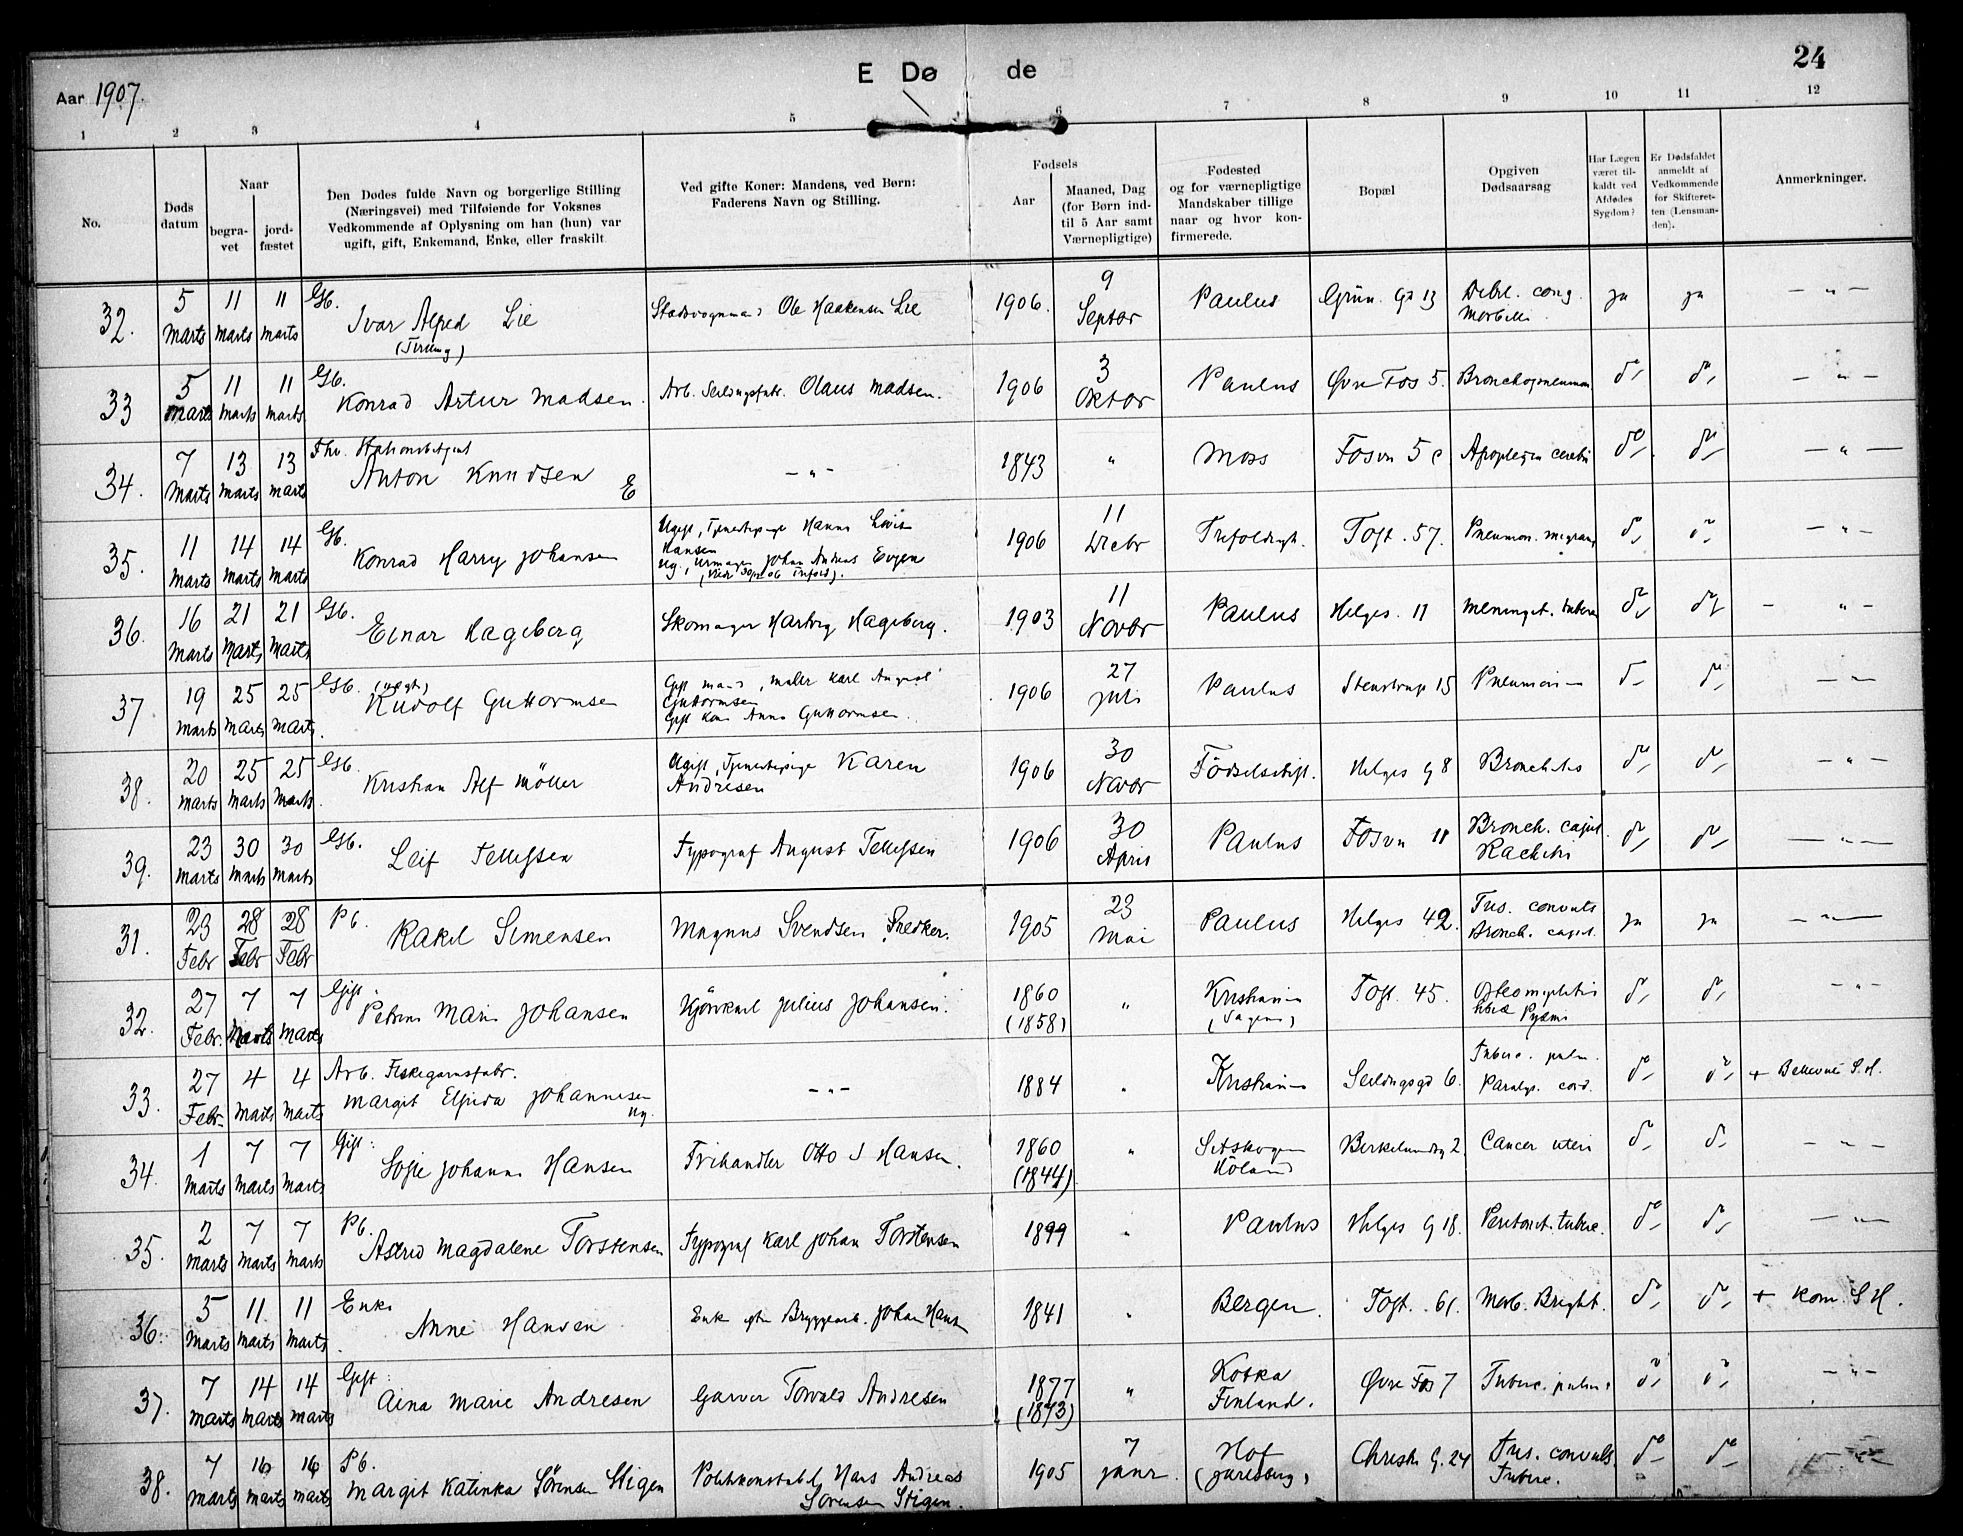 24
E Dø de
Aar 1907.
1 2 3 4 5 6 7 8 9 10 11 12
No.
Døds datum
Naar
begra-vet
jord-fæstet
Den Dødes fulde Navn og borgerlige Stilling
(Næringsvei) med Tilføiende for Voksnes
Vedkommende af Oplysning om han (hun) var
ugift, gift, Enkemand, Enke, eller fraskilt
Ved gifte Koner: Mandens, ved Børn:
Faderens Navn og Stilling.
Fødsels
Aar
Maaned, Dag
(for Børn ind-
til 5 Aar samt
Værnepligtige)
Fødested
og for værnepligtige
Mandskaber tillige
naar og hvor kon-
firmerede.
Bopæl
Opgiven
Dødsaarsag
Har Lægen
været til-
kaldt ved
Afdødes
Sygdom?
Er Dødsfaldet
anmeldt af
Vedkommende
for Skifteret-
ten (Lensman-
den).
Anmerkninger.
32. 5 Marts 11 Marts 11 Marts Gb. Ivar Alfred Lie (Tvilling) Ole Haakensen Lie 1906. 9 Septbr Paulus Grün. Gd 13 Debil. cong. Morbilli ja ja — „ —
33 5 Marts 11 Marts 11 Marts Gb. Konrad Artur Madsen. Arb. Seildugsfabr. Olaus Madsen. 1906 3 Oktbr Paulus Øvre Fos 5. Bronchopneumon do, do, — „ —
34. 7 Marts 13 Marts 13 Marts Fhv. Stationsbetjent Anton Knudsen E — „ — 1843 „ Moss Fosvn 5 c Apoplexia cerebri do, do, — „ —
35. 11 Marts 14 Marts 14 Marts Gb. Konrad Harry Johansen Ugift, Tjenestepige Hanna Hansen Ug., Urmager Johan Andreas Evgen 1906 11 Decbr Trefoldigh. Toft. 57. Pneumon. migrans do, do, — „ —
36. 16 Marts 21 Marts 21 Marts Gb. Einar Hageberg Skomager Hartvig Hageberg. 1903 11 Novbr Paulus Helges. 11 Meningit. tuberc do, do, — „ —
37. 19 Marts 25 Marts 25 Marts. Gb. (uægt.) Rudolf Guttormsen Gift mand, maler Karl August Guttormsen Gift kone Anna Guttormsen. 1906 27 Juli Paulus Stenstrups 15 Pneumonia do, do, — „ —
38. 20 Marts 25 Marts 25 Marts. Gb. Kristian Alf Möller Ugift, Tjenestepige Karen Andresen 1906 30 Novbr Födselsstift. Helges g 8 Bronchitis do, do, — „ —
39. 23 Marts 30 Marts 30 Marts Gb. Leif Tellefsen Typograf August Tellefsen 1906 30 April Paulus Fosvn 11 Bronch. capil. Rachitis do, do, — „ —
31. 23 Febr 28 Febr 28 Febr Pb. Rakel Simensen Magnus Svendsen Snedker. 1905 23 Mai Paulus Helges 42. Tus. convuls Bronch. capil. ja ja — „ —
32. 27 Febr. 7 Marts 7 Marts Gift. Petrine Marie Johansen Kjörekarl Julius Johansen. 1860 (1858) „ Kristiania (Sagene) Toft. 45. Osteomyelitis tibiæ Pyæmi do, do, — „ —
33. 27 Febr. 4 Marts 4 Marts Arb. Fiskegarnsfabr. Margit Elfrida Johannesen Ug. — „ — 1884 „ Kristiania Seildugsgd 6. Tuberc. pulm. Paralys. cord. do, do, + Bellevue S.H.
34. 1 Marts 7 Marts 7 Marts Gift: Sofie Johanne Hansen Frihandler Otto J Hansen. 1860 (1844) „ Setskogen Höland Birkelundg 2 Cancer uteri do, do, — „ —
35. 2 Marts 7 Marts 7 Marts Pb. Astrid Magdalene Torstensen Typograf Karl Johan Torstensen 1899 „ Paulus Helges g 18. Peritonit. tuberc. do, do, — „ —
36. 5 Marts 11 Marts 11 Marts. Enke Anne Hansen Enke efter Bryggearb. Johan Hansen 1841 „ Bergen. Toft. 61. Morb. Bright. do, do, + Kom. S H.
37. 7 Marts 14 Marts 14 Marts Gift: Aina Marie Andresen Garver Torvald Andresen 1877 (1873) „ Kotka Finland. Øvre Fos 7 Tuberc. pulm. do, do, — „ —
38. 7 Marts 16 Marts 16 Marts Pb. Margit Katinka Sörensen Stigen Politikonstabel Hans Andreas Sörensen Stigen. 1905 7 Janr. Hof (Jarlsberg) Christi. G. 24 Tus. convuls. Tuberc. do, do, — „ —